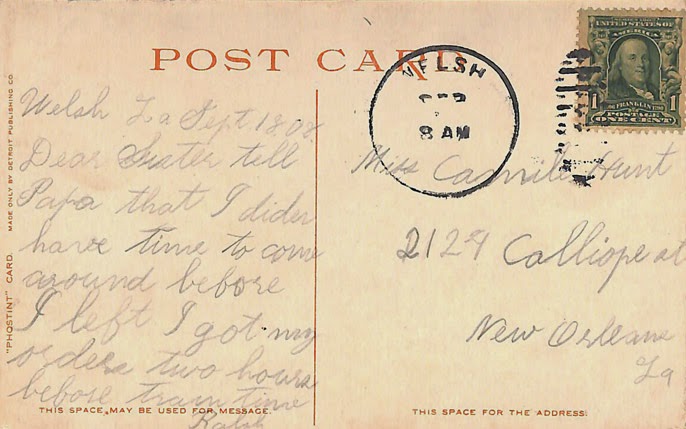 POST CARD
WELSH
SEP
8 AM
UNITED STATES OF AMERICA
1 FRANKLIN 1
POSTAGE
ONE CENT
MADE ONLY BY DETROIT PUBLISHING CO.
"PHOSTINT" CARD.
Welsh La Sept 18 08
Dear Sister tell
Papa that I diden
have time to come
around before
I left I got my
orders two hours
before train time
Ralph
THIS SPACE MAY BE USED FOR MESSAGE.
Miss Camile Hunt
2129 Calliope st
New Orleans
La
THIS SPACE FOR THE ADDRESS.